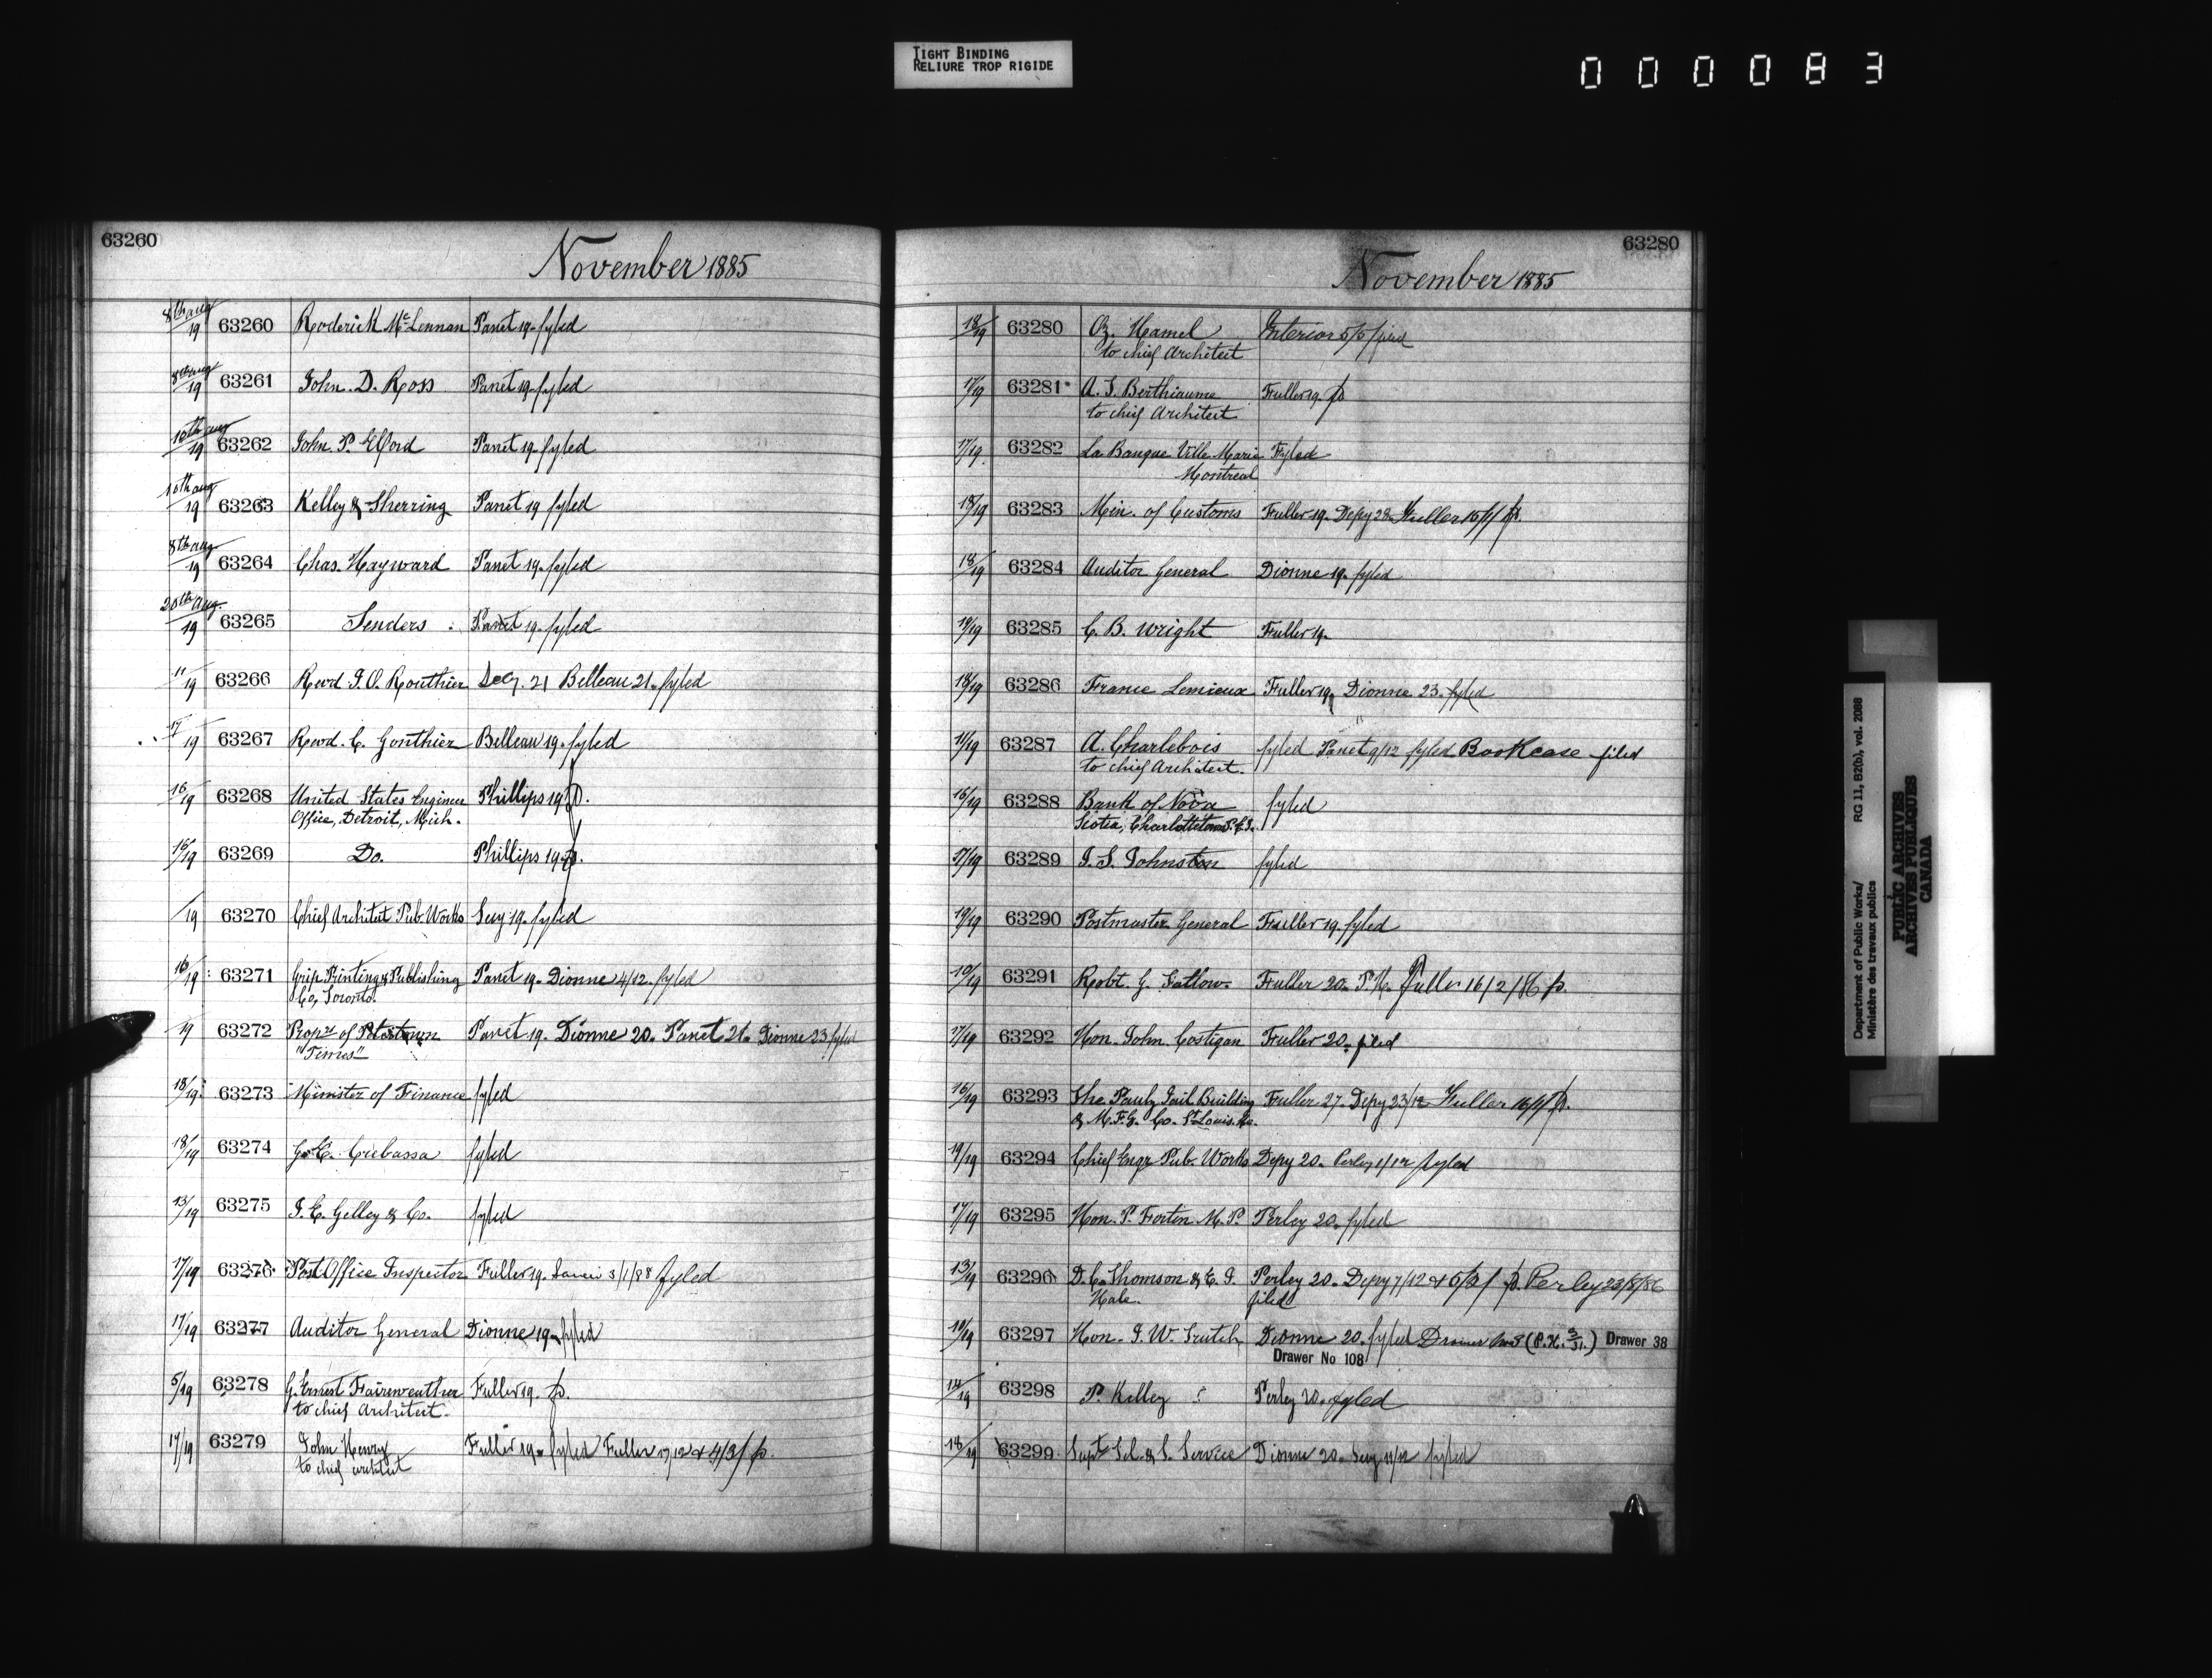 TIGHT BINDING
RELIURE TROP RIGIDE
000083
63260
November 1885
8th aug/19 63260 Roderick McLennan Panet 19. fyled
8th aug/19 63261 John. D. Ross Panet 19. fyled
10th aug/19 63262 John. P. Elford Panet 19. fyled
10th aug/19 63263 Kelley & Sherring Panet 19 fyled
8th aug/19 63264 Chas. Hayward Panet 19. fyled
20th Aug./19 63265 Tenders Panet 19. fyled
11/19 63266 Revd J. O. Routhier Secy. 21 Belleau 21. fyled
17/19 63267 Revd. C. Gonthier Belleau 19. fyled
16/19 63268 United States Engineer Phillips 19. p.
Office, Detroit, Mich.
16/19 63269 Do. Phillips 19. p.
/19 63270 Chief Architect Pub. Works Secy 19. fyled
16/19 63271 Grip Printing & Publishing Panet 19. Dionne 4/12. fyled
Co, Toronto.
19 63272 Propr of Panet 19. Dionne 20. Panet 21. Dionne 23 fyled
"Times"
18/19 63273 Minister of Finance fyled
18/19 63274 G. E. fyled
13/19 63275 J. E. Gelley & Co. fyled
17/19 63276 Post Office Inspector Fuller 19. 3/1/88 fyled
17/19 63277 Auditor General Dionne 19. fyled
5/19 63278 G. Ernest Fairweather Fuller 19. p.
to chief Architect.
17/19 63279 John Henry Fuller 19. fyled Fuller 17/12 & 4/3/ p.
to chief architect
63280
November 1885
18/19 63280 Oz. Hamel Interior 5/5/ fyled
to chief Architect
17/19 63281 A. T. Berthiaume Fuller 19. p
to chief Architect
17/19 63282 La Banque Ville Marie Fyled
Montreal
18/19 63283 Min. of Customs Fuller 19. Depy 28. Fuller 15/1/ p.
18/19 63284 Auditor General Dionne 19. fyled
19/19 63285 C. B. Wright Fuller 19.
18/19 63286 France Lemieux Fuller 19, Dionne 23. fyled
11/19 63287 A. Charlebois fyled Panet 9/12 fyled Bookcase filed
to chief Architect.
16/19 63288 Bank of Nova fyled
Scotia, Charlottetown P.E.I.
17/19 63289 J. S. Johnston fyled
19/19 63290 Postmaster General Fuller 19. fyled
10/19 63291 Robt. G. Fuller 20. P.K. Fuller 16/2/86 p.
17/19 63292 Hon. John Costigan Fuller 20. filed
16/19 63293 The Pauly Jail Building Fuller 27. Depy 23/12 Fuller 16/1/ p.
& M.F.G. Co. St Louis. Mo.
19/19 63294 Chief Engr Pub. Works Depy 20. Perley 1/12 fyled
17/19 63295 Hon. P. Fortin M. P. Perley 20. fyled
13/19 63296 D. C. Thomson & E. J. Perley 20. Depy 7/12 & 5/2/ p. Perley 23/8/86
Hale. filed
10/19 63297 Hon. J. W. Trutch Dionne 20. fyled Drawer (P.K. ) Drawer 38
Drawer No 108
14/19 63298 P. Kelley Perley 20. fyled
18/19 63299 Supt Tel. & S. Service Dionne 20. Secy 11/12 fyled
Department of Public Works/ RG 11, B2(b), vol. 2088
Ministère des travaux publics
PUBLIC ARCHIVES
ARCHIVES PUBLIQUES
CANADA